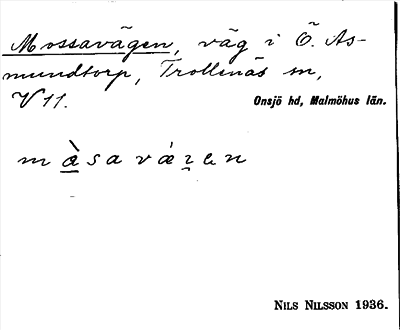 Mossavägen, väg i Ö. As-
mundtorp, Trollenäs sn,
V 11.
Onsjö hd, Malmöhus län.
NILS NILSSON 1936.